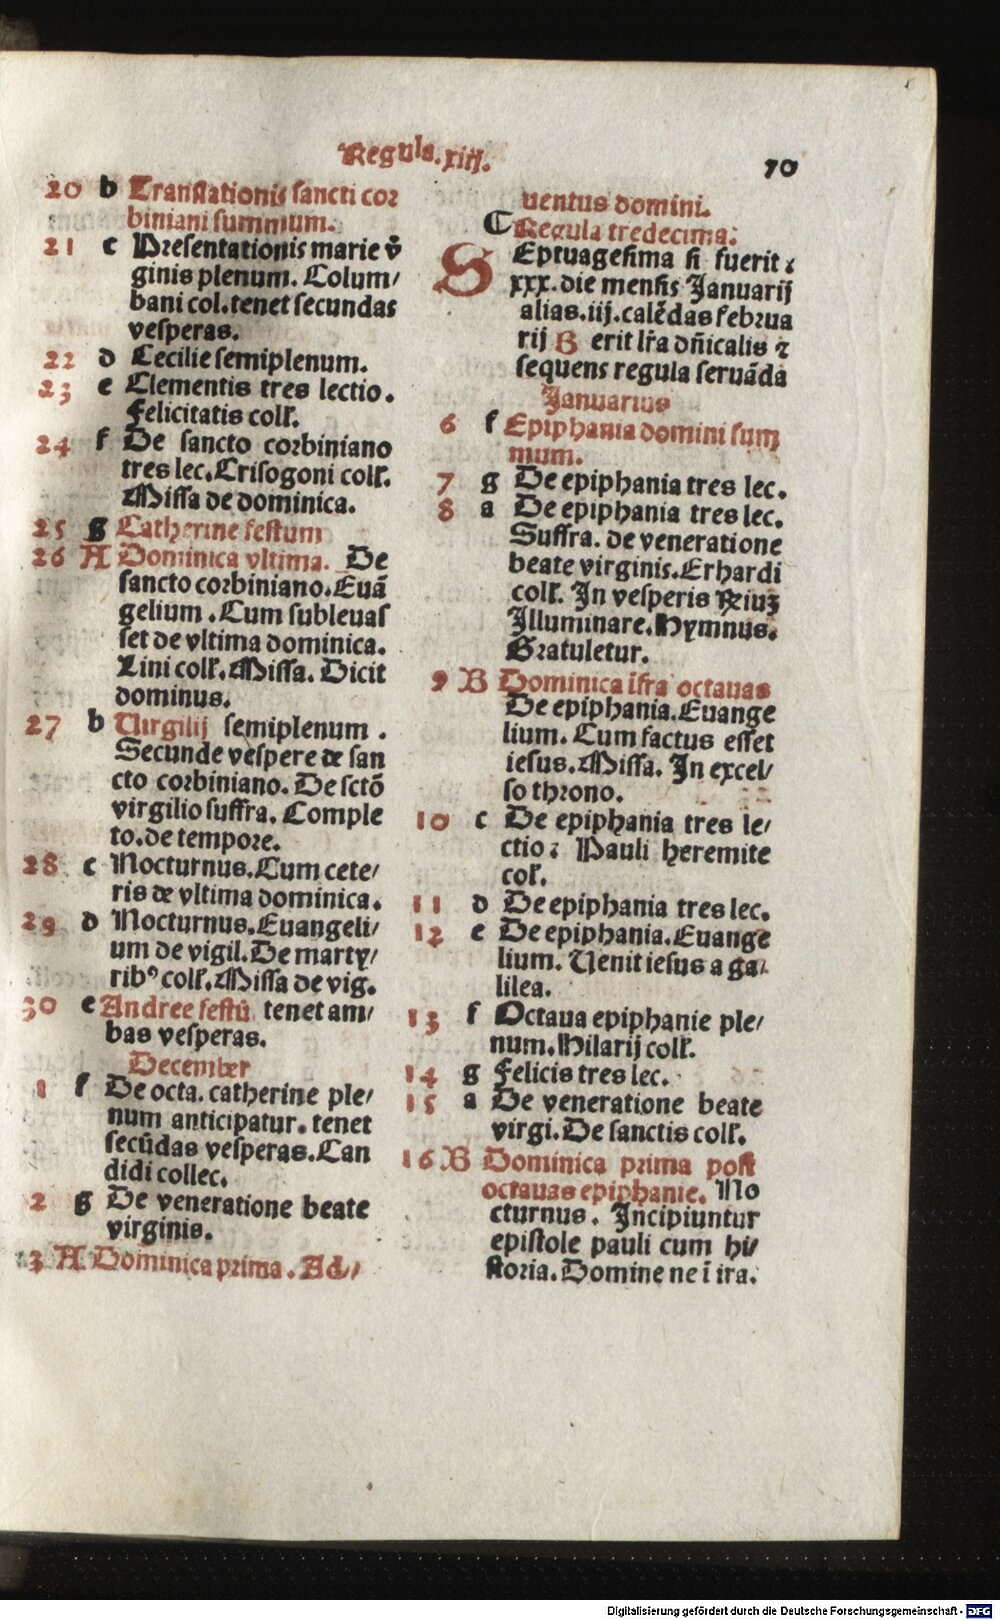 Regula. xiij.
70
20 b Translationis sancti cor
biniani summum.
21 c Presentationis marie v̄
ginis plenum. Colum/
bani col. tenet secundas
vesperas.
22 d Cecilie semiplenum.
23 e Clementis tres lectio.
Felicitatis coll̄.
24 f De sancto corbiniano
tres lec. Crisogoni coll̄.
Missa de dominica.
25 g Catherine festum
26 A Dominica vltima. De
sancto corbiniano. Euā
gelium. Cum subleuas
set de vltima dominica.
Lini coll̄. Missa. Dicit
dominus.
27 b Uirgilij semiplenum.
Secunde vespere de san
cto corbiniano. De sctō
virgilio suffra. Comple
to. de tempore.
28 c Nocturnus. Cum cete/
ris de vltima dominica.
29 d Nocturnus. Euangeli/
um de vigil. De marty/
ribꝰ coll̄. Missa de vig.
30 e Andree festū tenet am/
bas vesperas.
December
1 f De octa. catherine ple/
num anticipatur. tenet
secūdas vesperas. Can
didi collec.
2 g De veneratione beate
virginis.
3 A Dominica prima. Ad/
uentus domini.
Regula tredecima:
SEptuagesima si fuerit :
xxx. die mensis Januarij
alias. iij. calēdas februa
rij B erit lr̄a dn̄icalis ⁊
sequens regula seruāda
Januarius
6 f Epiphania domini sum
mum.
7 g De epiphania tres lec.
8 a De epiphania tres lec.
Suffra. de veneratione
beate virginis. Erhardi
coll̄. In vesperis R̄eiuꝫ
Illuminare. Hymnus.
Gratuletur.
9 B Dominica īfra octauas
De epiphania. Euange
lium. Cum factus esset
iesus. Missa. In excel/
so throno.
10 c De epiphania tres le/
ctio: Pauli heremite
col̄.
11 d De epiphania tres lec.
12 e De epiphania. Euange
lium. Uenit iesus a ga/
lilea.
13 f Octaua epiphanie ple/
num. Hilarij coll̄.
14 g Felicis tres lec.
15 a De veneratione beate
virgi. De sanctis coll̄.
16 B Dominica prima post
octauas epiphanie. No
cturnus. Incipiuntur
epistole pauli cum hi/
storia. Domine ne ī ira.
Digitalisierung gefördert durch die Deutsche Forschungsgemeinschaft - DFG